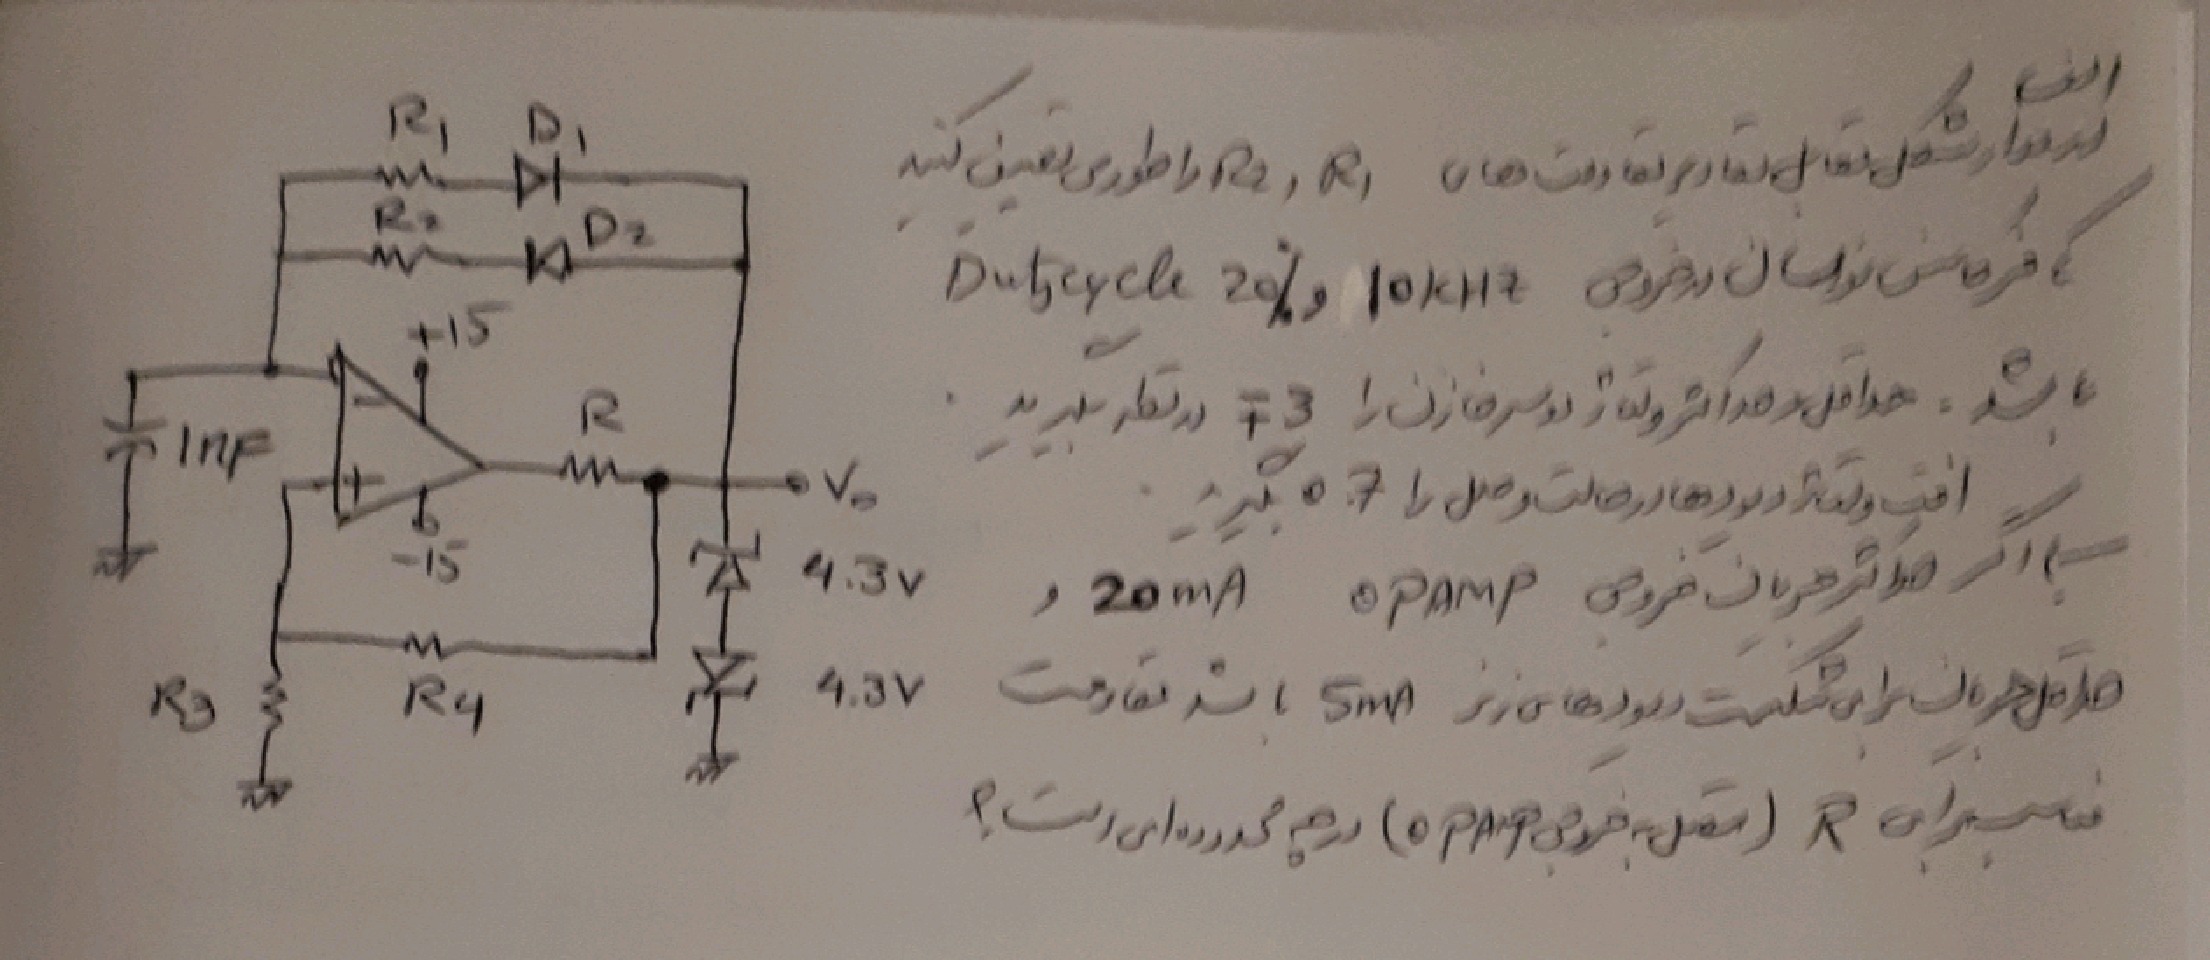 الف
در مدار شکل مقابل مقادیر مقاومت های R1 , R2 را طوری تعیین کنید
که فرکانس نوسان در خروجی 10kHz و Dutycycle 20%
باشد. حداقل و حداکثر ولتاژ دو سر خازن را ∓3 در نظر بگیرید.
افت ولتاژ دیودها در حالت وصل را 0.7 بگیرید.
ب) اگر حداکثر جریان خروجی OPAMP 20mA و
حداقل جریان برای شکست دیودهای زنر 5mA باشد مقاومت
مناسب برای R (متصل به خروجی OPAMP) در چه محدوده ای است؟
R1 D1
R2 D2
+15
R
1nF
-
+
Vo
-15
4.3V
4.3V
R3
R4